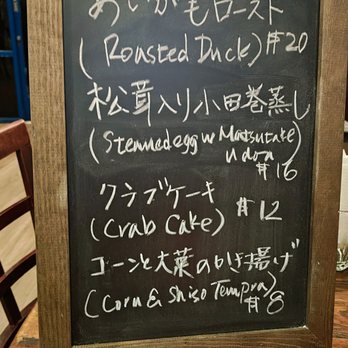 あいがもロースト
(Roasted Duck) #20
松茸入り小田巻蒸し
(Stemmed egg w Matsutake
Udon)
#16
クラブケーキ
(Crab Cake) #12
コーンと大葉のかき揚げ
(Corn & Shiso Tempra)
#8